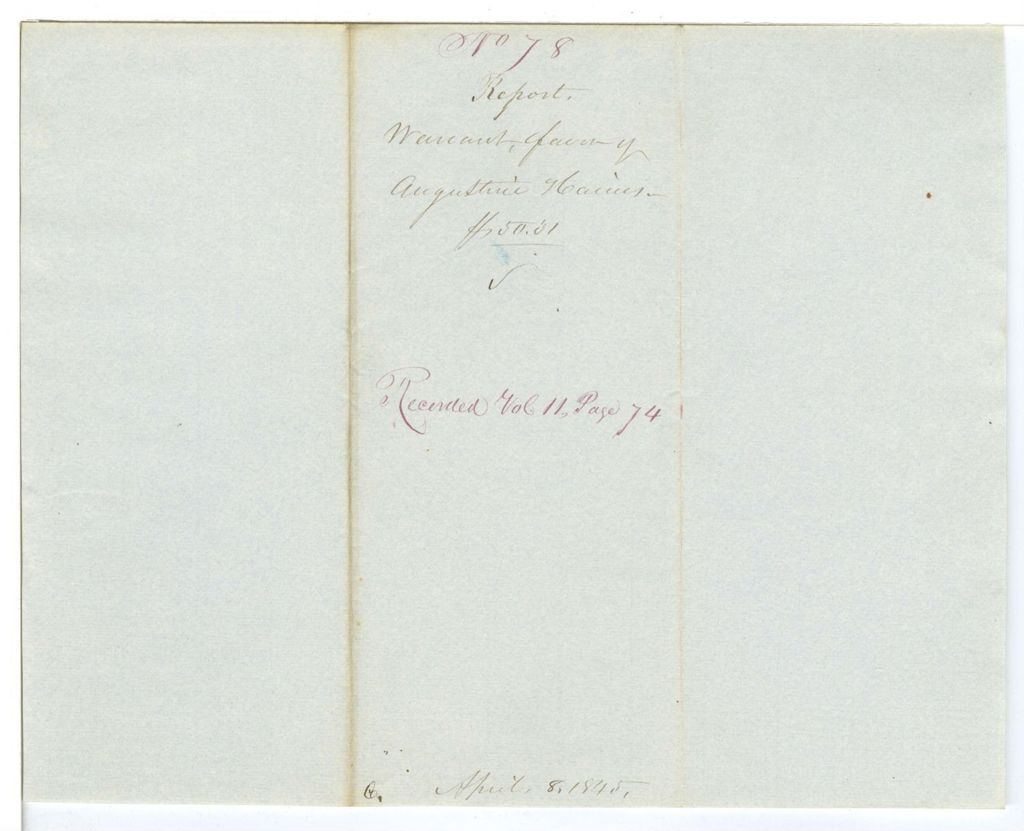 No 78
Report.
Warrant, favor of
Augustine Haines.
$50.51
Recorded Vol 11, Page 74
April. 8, 1845.